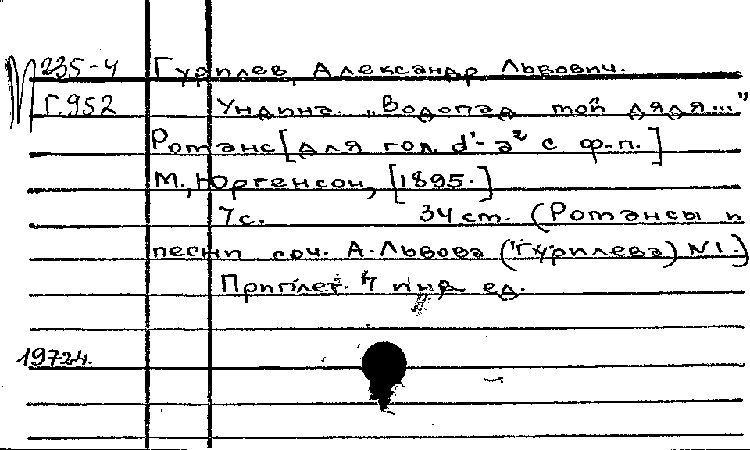 М 235-4 Гурилев, Александр Львович.
Г.952 Ундина. „Водопад мой дядя..."
Романс [для гол. d'-a² с ф-п.]
М., Юргенсон, [1895.]
7 с. 34 см. (Романсы и
песни соч. А. Львова (Гурилева) №1.)
Приплет. 7 ед.
19724.